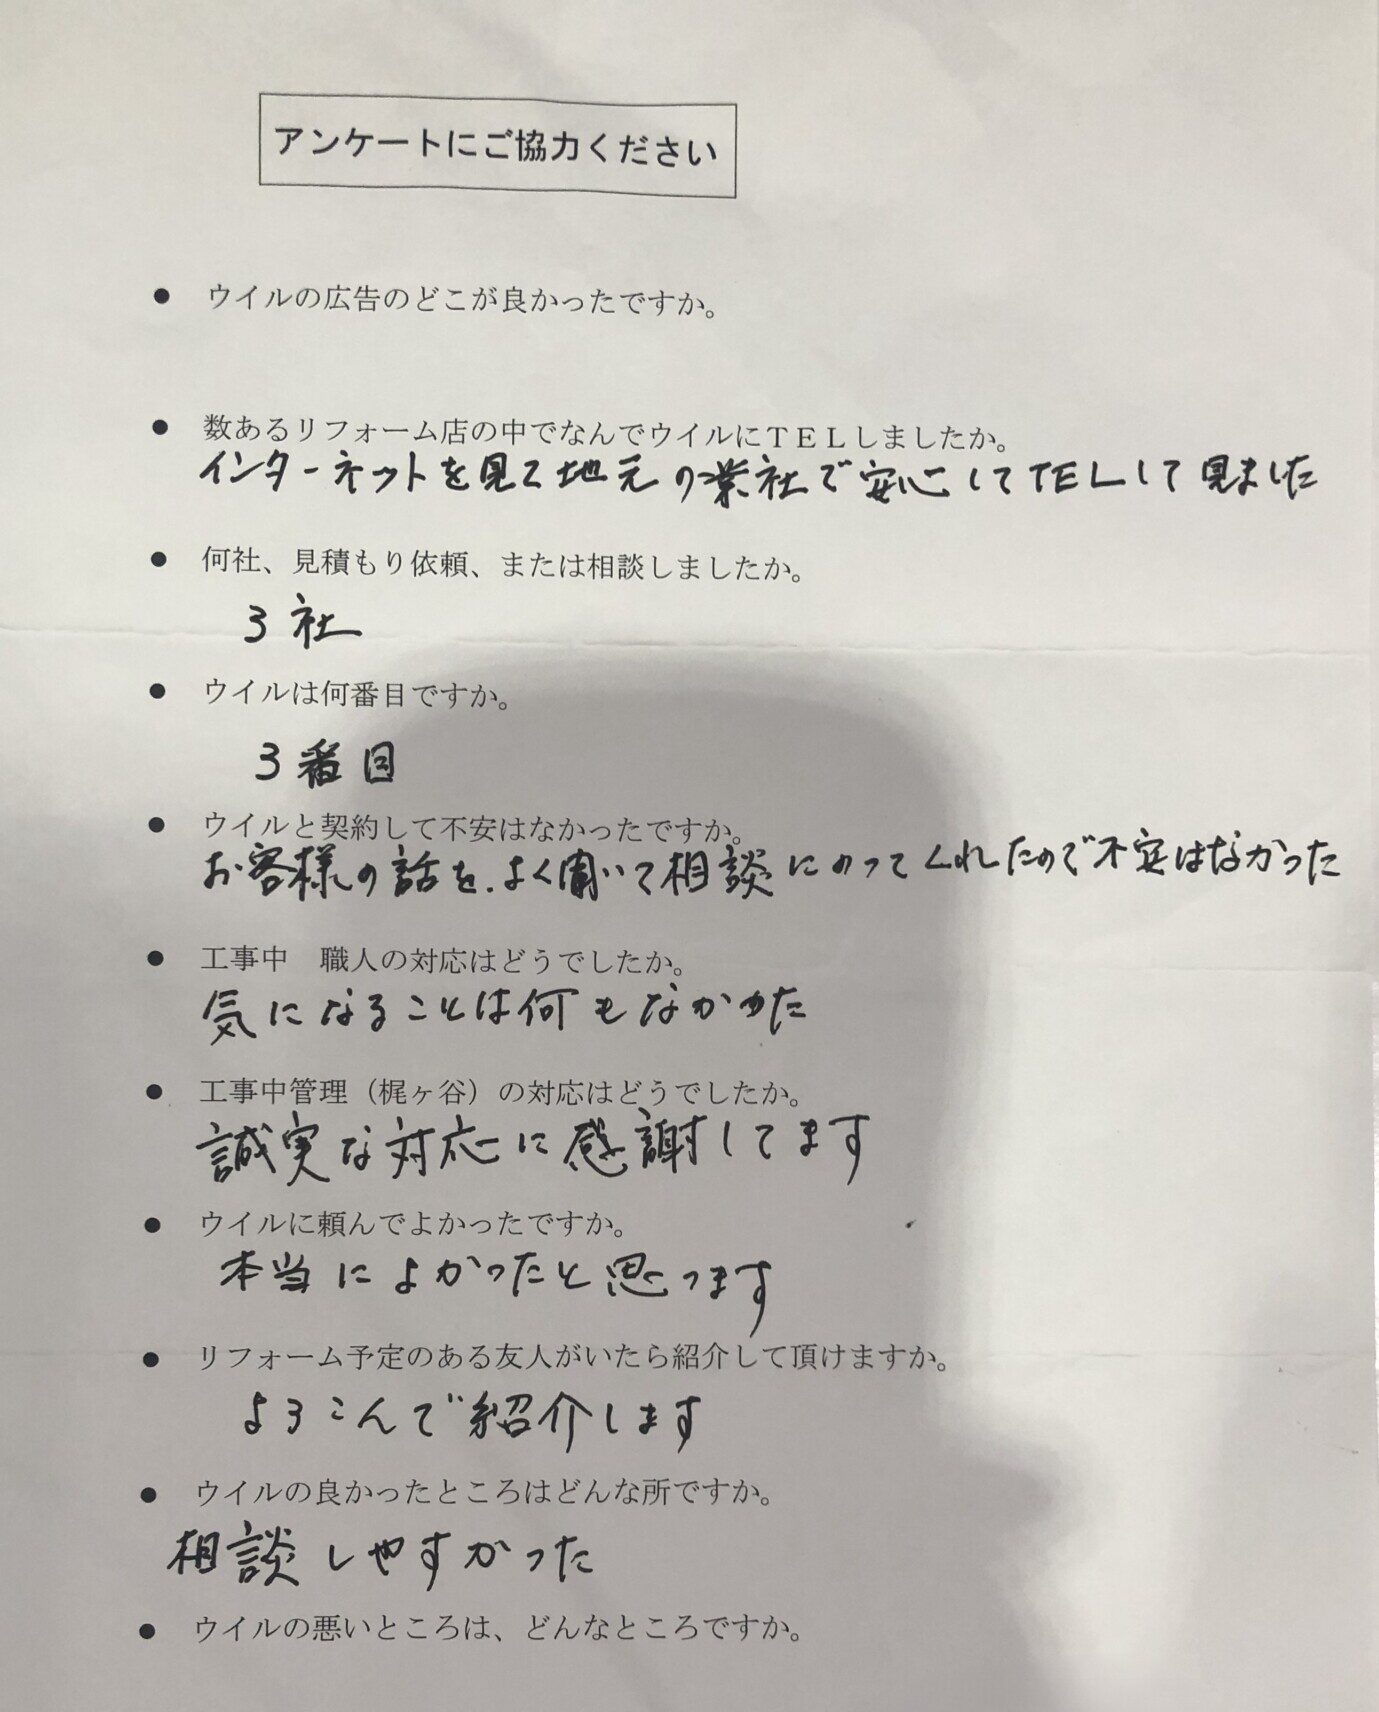 アンケートにご協力ください
● ウイルの広告のどこが良かったですか。
● 数あるリフォーム店の中でなんでウイルにＴＥＬしましたか。
インターネットを見て地元の業社で安心してTELして見ました
● 何社、見積もり依頼、または相談しましたか。
3社
● ウイルは何番目ですか。
3番目
● ウイルと契約して不安はなかったですか。
お客様の話を、よく聞いて相談にのってくれたので不安はなかった
● 工事中　職人の対応はどうでしたか。
気になることは何もなかった
● 工事中管理（梶ヶ谷）の対応はどうでしたか。
誠実な対応に感謝してます
● ウイルに頼んでよかったですか。
本当によかったと思います
● リフォーム予定のある友人がいたら紹介して頂けますか。
よろこんで紹介します
● ウイルの良かったところはどんな所ですか。
相談しやすかった
● ウイルの悪いところは、どんなところですか。